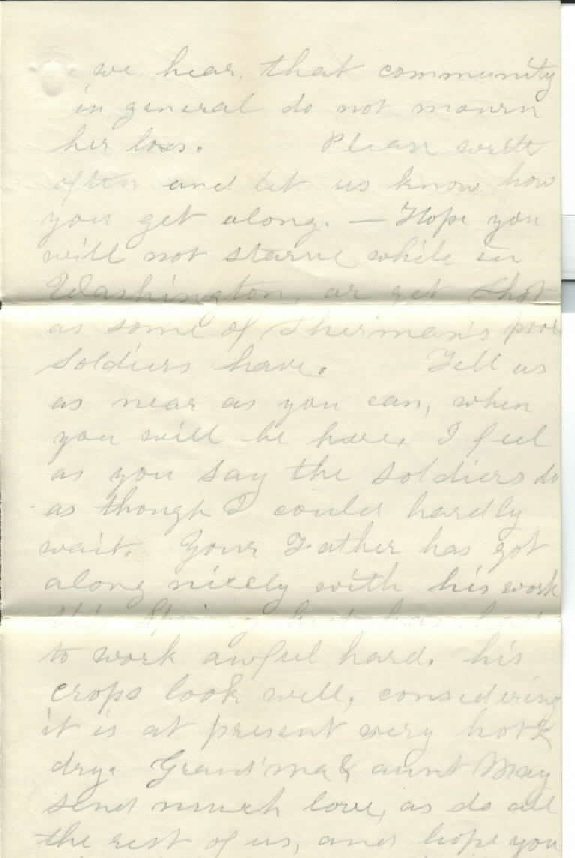 we hear, that community
in general do not mourn
her loss. Please write
often and let us know how
you get along. — Hope you
will not starve while in
Washington, or get shot
as some of Sherman's poor
soldiers have. Tell us
as near as you can, when
you will be here, I feel
as you say the soldiers do
as though I could hardly
wait. Your Father has got
along nicely with his work
this Spring but has had
to work awful hard. his
crops look well, considering
it is at present very hot &
dry. Grand'ma & aunt May
send much love, as do all
the rest of us, and hope you